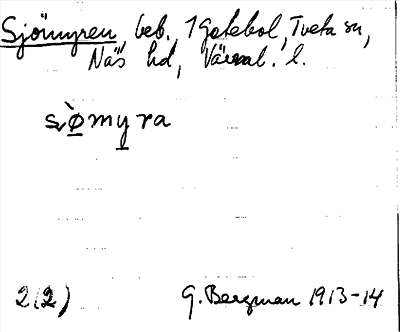 Sjömyren, beb. 1 Gatebol, Tveta sn,
Näs hd, Värml. l.
sø̀myra
2(2) G. Bergman 1913-14